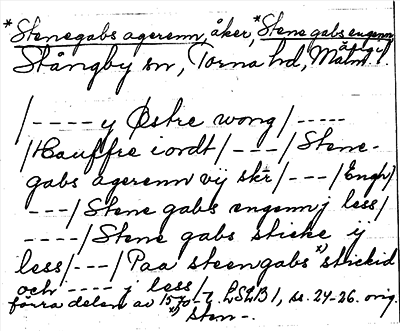 *Stenegabs agerenn, åker, *Stene gabs engenn, äng i
Stångby sn, Torna hd, Malm. l.
/---- y Østre wong/-----
/Hauffre iordt/---/Stene-
gabs agerenn vij skr/---/Engh/
---/Stene gabs engenn j less/
----/Stene gabs sticke ij
less/---/Paa steengabs x) stickid
och ---- j less/
förra delen av 1570-t. LSLB 1, ss. 24-26. orig.
x) Sten-.